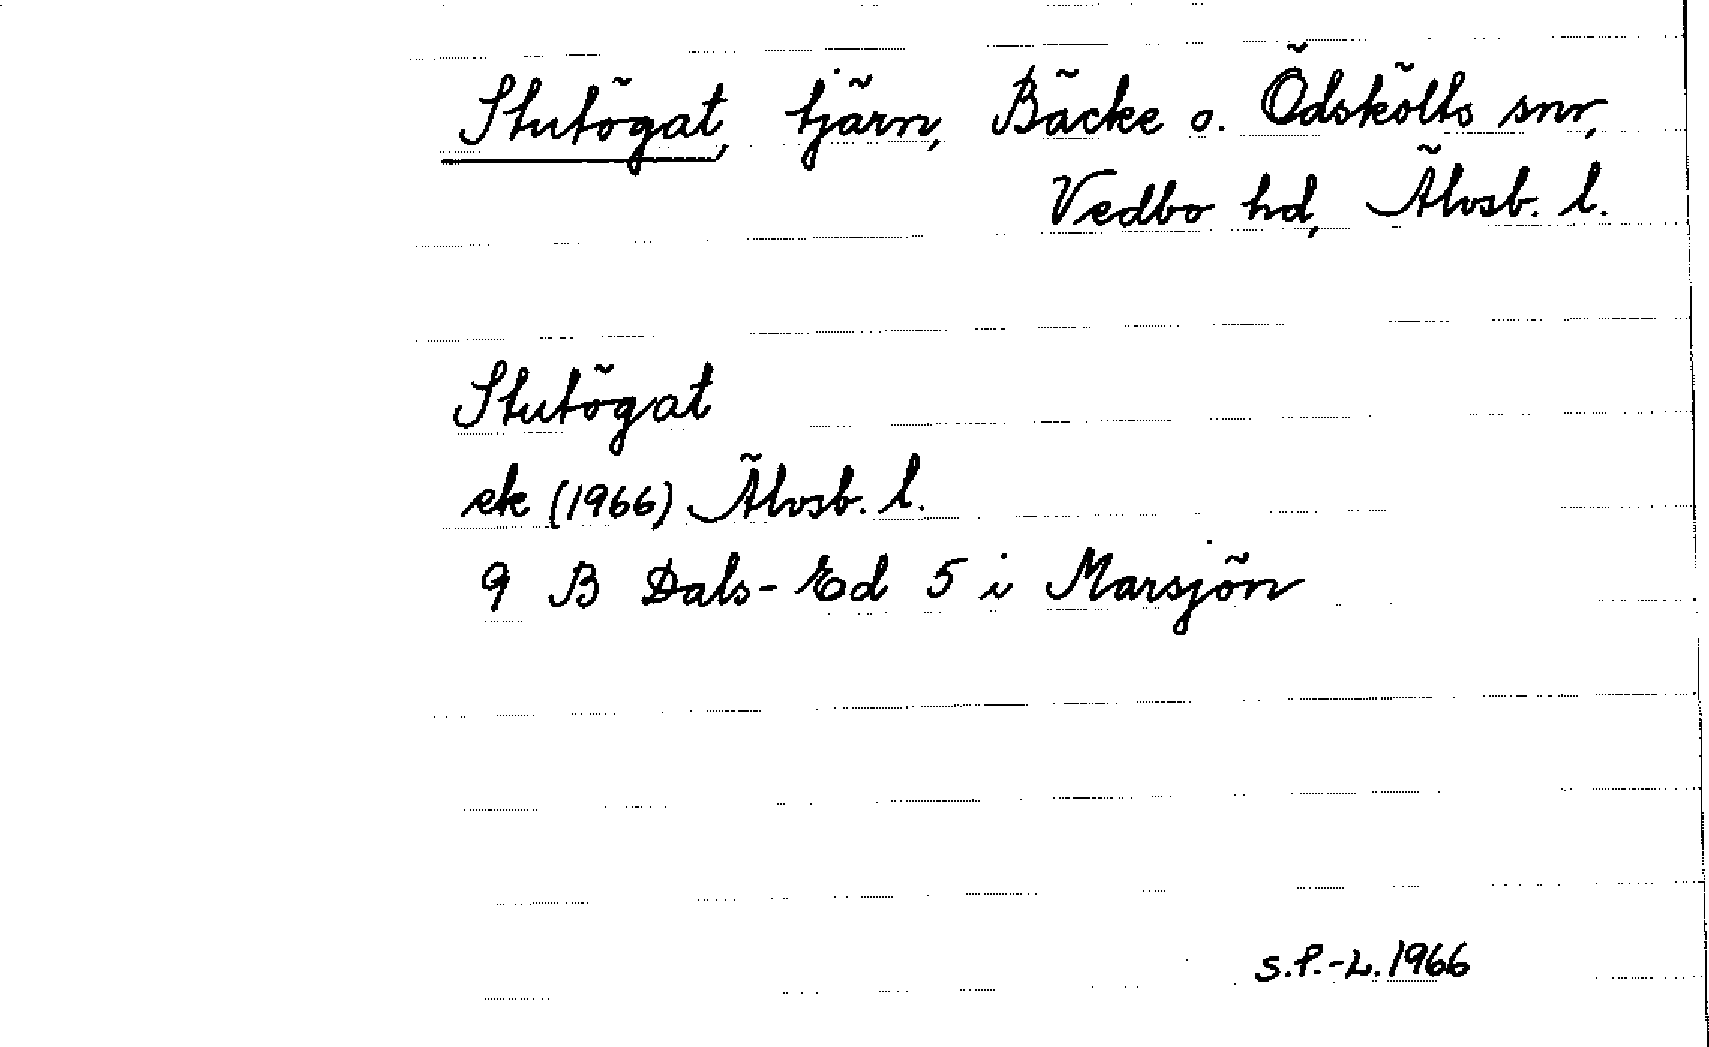 Stutögat, tjärn, Bäcke o. Ödskölts snr,
Vedbo hd, Älvsb. l.
Stutögat
ek (1966) Älvsb. l.
9 B Dals-Ed 5 i Marsjön
S.P.-L. 1966